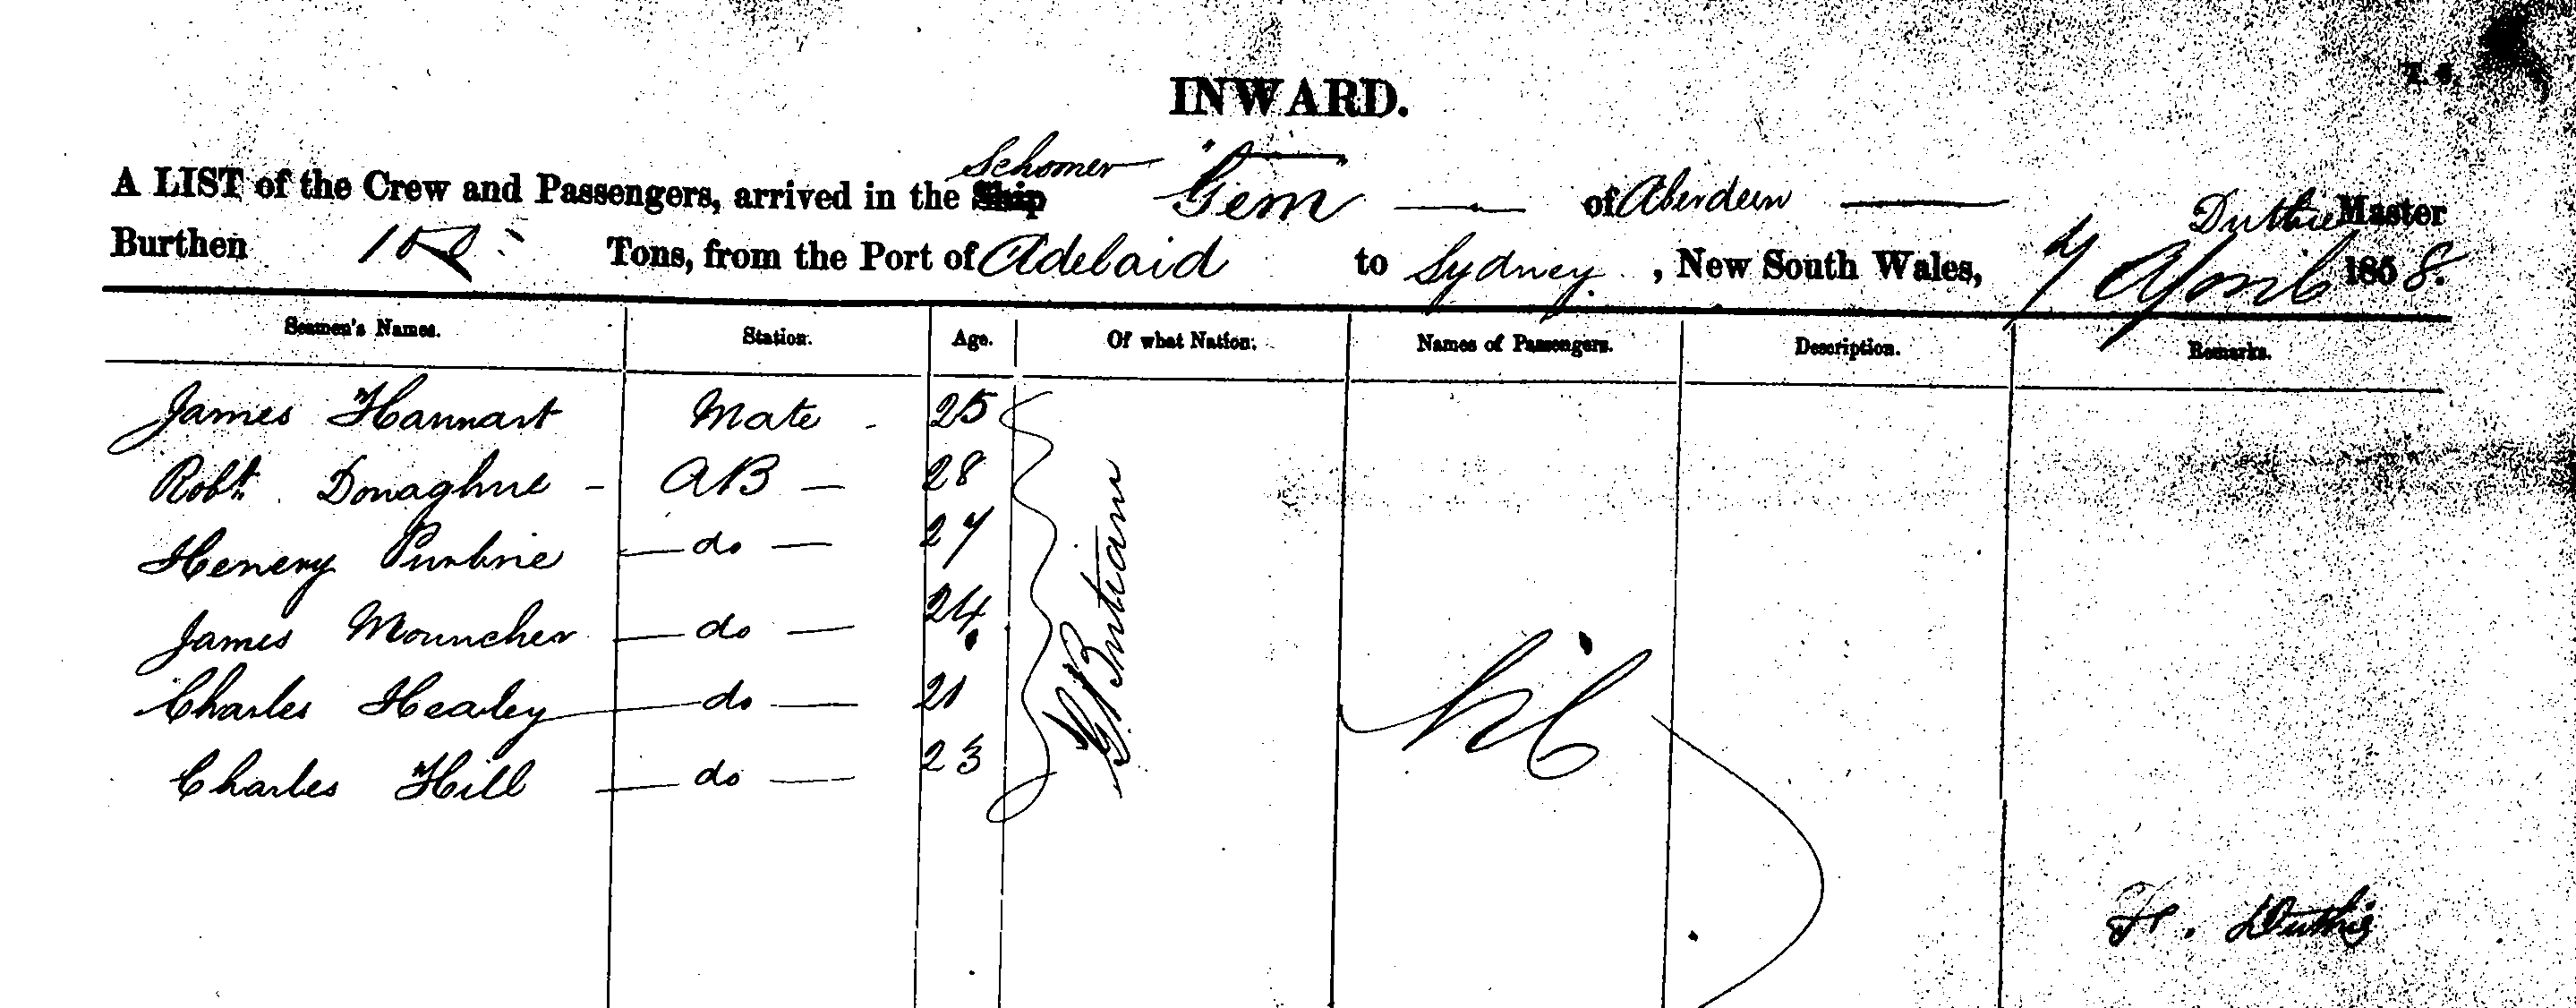 INWARD.
A LIST of the Crew and Passengers, arrived in the Ship Schooner "Gem" of Aberdeen Duthie Master
Burthen Tons, from the Port of Adelaid to Sydney, New South Wales, 7 April 1858.
Seamen's Names. Station. Age. Of what Nation. Names of Passengers. Description. Remarks.
James Hannart Mate 25
Robt. Donaghue AB 28
Henery Purbrie do 27
James Mouncher do 24
Charles Healey do 21
Charles Hill do 23
G. Britain
Nil
Duthie